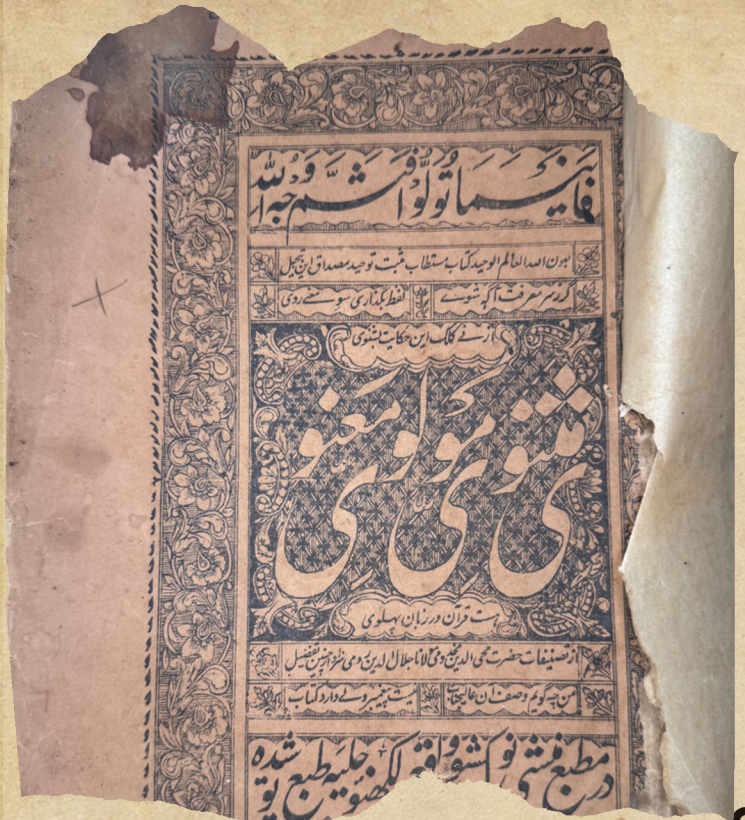 فاینما تولوا فثم وجه الله
بعون الصمد العالم الوحید کتاب مستطاب مثبت توحید مصداق این
گر ز سر معرفت آگه شوے لفظ بگذاری سوے معنے روی
از نے کلک این حکایت بشنوی
مثنوی مولوی معنوی
هست قرآن در زبان پهلوی
از تصنیفات حضرت مولانا جلال الدین رومی
من چه گویم وصف آن عالیجناب نیست پیغمبر ولے دارد کتاب
در مطبع منشی نولکشور واقع لکھنؤ طبع شده